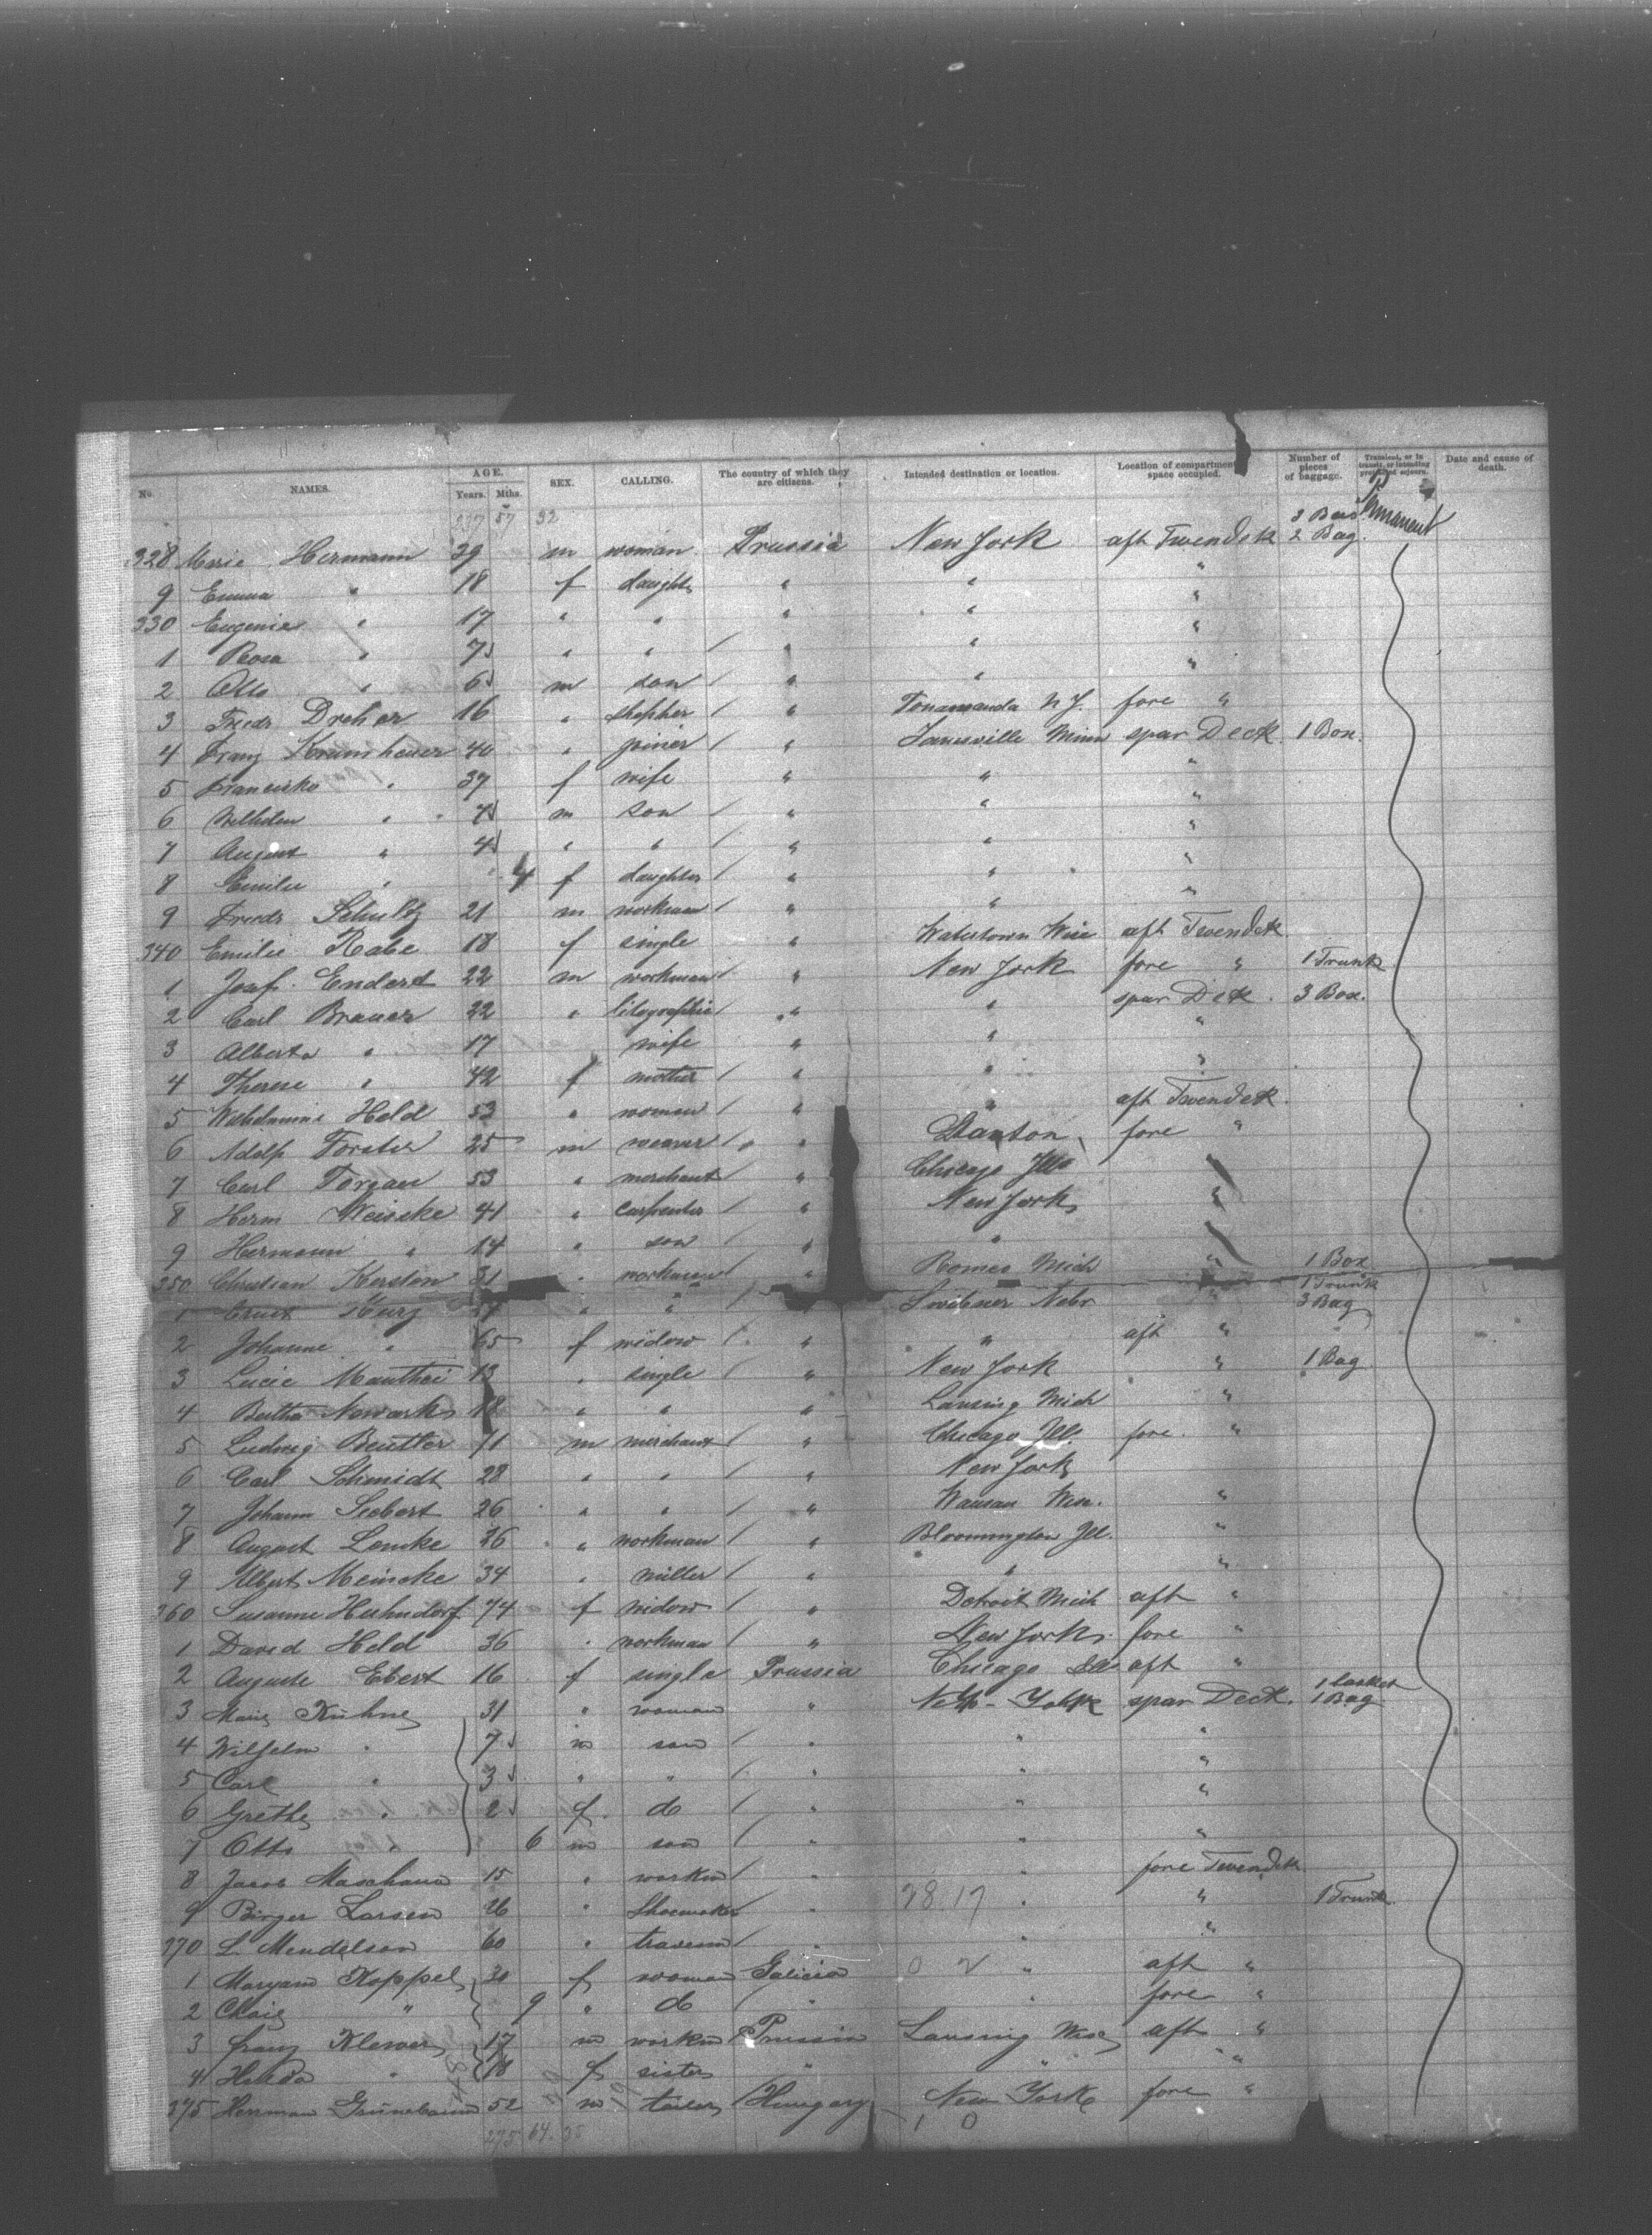 No. NAMES. AGE. Years. Mths. SEX. CALLING. The country of which they are citizens. Intended destination or location. Location of compartment space occupied. Number of pieces of baggage. Transient, or in transit, or intending protracted sojourn. Date and cause of death.
237 57 32
3 Permanent
328 Marie Hermann 39 m woman Prussia New York aft Twendek 2 Bag.
9 Emma " 18 f daught " " "
330 Eugenie " 17 " " " " "
1 Rosa " 7 " " / " " "
2 Otto " 6 m son / " " "
3 Friedr Dreher 16 " / " Tonawanda N.Y. fore "
4 Franz Krumheuer 40 " joiner / " Janesville Minn spar Deck. 1 Box.
5 Francisko " 37 f wife " " "
6 Wilhelm " 7 m son / " " "
7 August " 4 " " / " " "
8 Emilie " 4 f daughter / " " "
9 Friedr Schultz 21 m workman / " " "
340 Emilie Rabe 18 f single " Watertown Wisc aft Twendek
1 Josef Endert 22 m workman / " New York fore " 1 Trunk
2 Carl Brauer 22 " / " " spar Deck. 3 Box.
3 Alberta " 17 wife " " "
4 Therese " 42 f mother / " " "
5 Wilhelmine Held 53 " woman / " " aft Twendek.
6 Adolf Forster 25 m weaver / " fore "
7 Carl Torgau 53 " merchant " Chicago Ills "
8 Herm Weiseke 41 " carpenter / " New York "
9 Hermann " 14 " son / " " "
350 Christian Kersten 31 " workman / " Romeo Mich " 1 Box
1 Ernst Kurz " " / Nebr " 1 Trunk 3 Bag
2 Johanne " 65 f widow / " " aft "
3 Lucie Manthei 13 " single / " New York " 1 Bag
4 Bertha Nowack 18 " " " Lansing Mich "
5 Ludwig Beutler 71 m merchant / " Chicago Ill. fore "
6 Carl Schmidt 28 " " / " New York
7 Johann Siebert 26 " " / " Wausau Wisc. "
8 August Lemke 26 " workman / " Bloomington Ill. "
9 Albert Meincke 34 " miller / " " "
360 Susanne 74 f widow / " Detroit Mich aft "
1 David Held 36 " workman / " New York. fore "
2 Auguste Ebert 16 f single Prussia Chicago Ill aft "
3 Marie Kühne 31 " woman " New-York spar Deck. 1 basket 1 Bag
4 Wilhelm " 7 m son / " " "
5 Carl " 3 " " / " " "
6 Grethe " 2 f do / " " "
7 Otto " 6 m son / " " "
8 Jacob 15 " workm / " " fore Twendek
9 Birger Larsen 26 " Shoemaker / " 28 17 " " 1 Trunk
370 L. Mendelson 60 " / " " "
1 Maryam Koppel 30 f woman Galicia 0 2 " aft "
2 Chaie " 9 " do / " " fore "
3 Franz Klewer 17 m workm Prussia Lansing Wisc aft "
4 18 f sister " " "
375 Herrman Grünebaum 52 m tailor / Hungary New York fore "
275 64 35 1 0